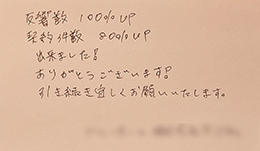 反響数 100%UP
契約件数 800%UP
出来ました!
ありがとうございます!
引き続き宜しくお願いいたします。